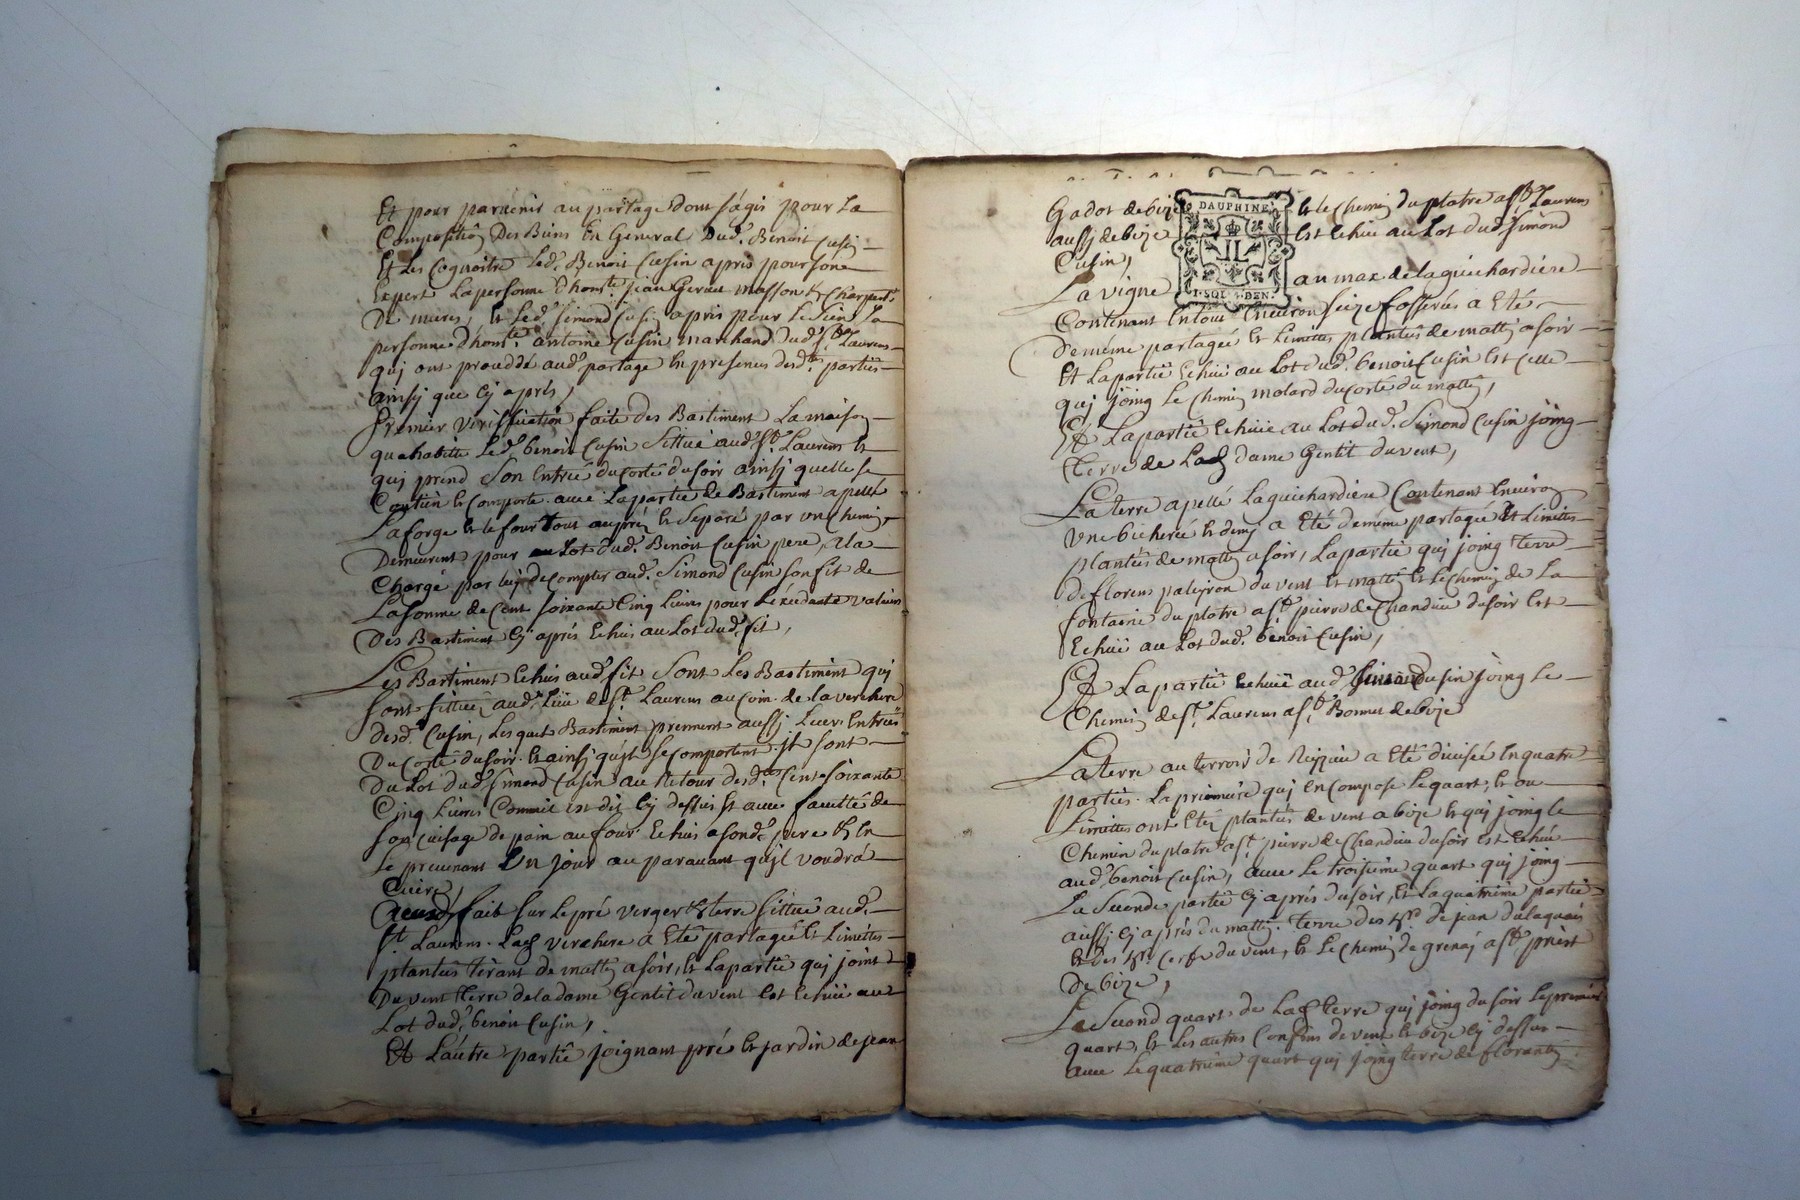 Et pour paruenir au partage dont s'agis pour La
Composition Des Biens En General Dud. Benoit Cusin
Et Les Cognoitre Led. Benoit Cusin a pris pour son
Expert La personne d'honste. jean Gernet masson & Charpent.
De mures, Et Led. Simond Cusin a pris pour Le Sien La
personne d'honste. antoine Cusin marchand dud. St. Laurens
quj ont proceddé aud. partage En presence desd. parties
ainsj que Cy apres,
Premier Veriffication faite des Bastiment La maison
quehabitte Led. benoit Cusin Sittué aud. St. Laurens Et
quj prend Son Entrée du Corté du soir ainsj quelle se
Contien Et Comporte auec La partie de Bastiment apellé
La forge Et le four tout auprés Et Separé par un Chemin,
Demeurent pour Lot dud. Benoit Cusin pere, a la
Charge par luj de Compter aud. Simond Cusin son fit de
La somme de Cent soixante Cinq Liures pour L'exedante valeur
Des Bastiment Cy aprés Echus au Lot dud. fit,
Les Bastiment Echus aud. fit Sont Les Bastiment quj
sont sittués aud. Lieu de St. Laurens au Coin de la verchere
desd. Cusin, Les quels Bastiment prennent aussj Leur Entrée
Du Corté du soir Et ainsj qu'jt se Comportent jt sont
Du Lot dud. Simond Cusin au Retour desd. Cent soixante
Cinq Liures Comme est dit Cy dessus Et auec faculté de
son Cuisage de pain au four Echus a sond. pere Et En
Le preuenant Un jour au parauant qu'jl voudrá
Cuire,
fait sur Le pré verger & terre sittué aud.
St. Laurens. Lad. verchere a Eté partagée Et Limittes
plantées tirant de mattin a soir, Et La partie quj joint
Du vent terre de la dame Gentit du vent Est Echuë au
Lot dud. benoit Cusin,
Et L'autre partie joignant pré Et jardin de jean
Gadot de bize Et le Chemin du platre a St. Laurens
aussj de bize Est Echue au Lot dud. Simond
Cusin,
La vigne au max de la guichardiere
Contenant En tout Enuiron seize fosserées a Eté
de méme partagée Et Limittes plantées de mattin a soir
Et La partie Echue au Lot dud. benoit Cusin Est Celle
quj joing Le Chemin molard du Corté du mattin,
Et La partie Echuë au Lot dud. Simond Cusin joing
terre de Lad. dame Gentit du vent,
La terre apellé La guichardiere Contenant Enuiron
Une bicherée Et demj a Eté de méme partagée Et Limittes
plantées de mattin a soir, La partie quj joing terre
de florens paleyron du vent Et mattin Et Le Chemin de La
fontaine du platre a St. pierre de Chandieu du soir Est
Echuë au Lot dud. benoit Cusin,
Et La partie Echuë aud. Simond Cusin joing Le
Chemin de St. Laurens a St. Bonnet de bize
La terre au terroir de a Eté diuisée En quatre
parties. La premiere quj En Compose Le quart, Et ou
Limittes ont Eté plantés de vent a bize Et quj joing Le
Chemin du platre a St. pierre de Chandieu du soir Est Echue
aud. benoit Cusin, auec Le troisieme quart quj joing
La Seconde partie Cy aprés du soir, Et La quatrieme partie
aussj Cy aprés du mattin. terre des hrs. de jean
Et des hrs. du vent, Et Le Chemin de grenaj a St. priest
De bize,
Le Second quart de Lad. terre quj joing du soir Le premier
quart, Et Les autres Confins de vent Et bize Cy dessus
auec Le quatrieme quart quj joing terre de florent
DAUPHINÉ
1. SOL DEN.